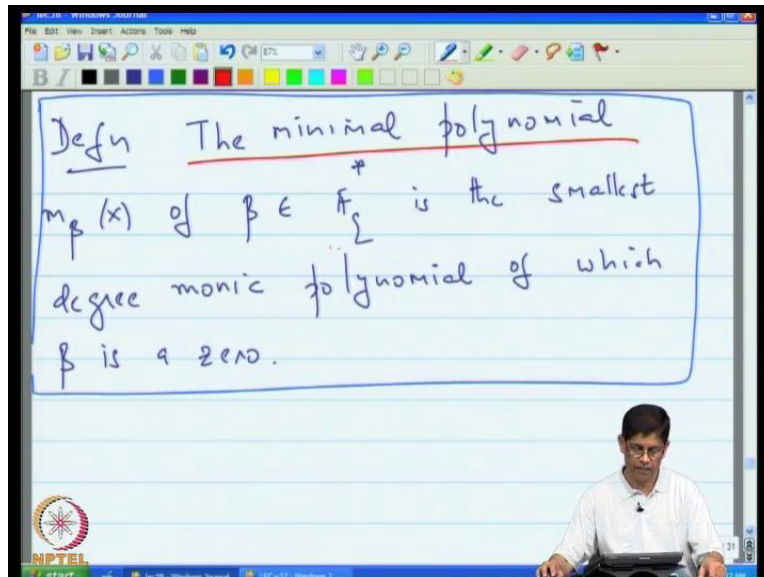 lec_38 - Windows Journal
File Edit View Insert Actions Tools Help
87%
B I
Defn The minimal polynomial
m_β(x) of β ∈ F_q^* is the smallest
degree monic polynomial of which
β is a zero.
31
NPTEL
start